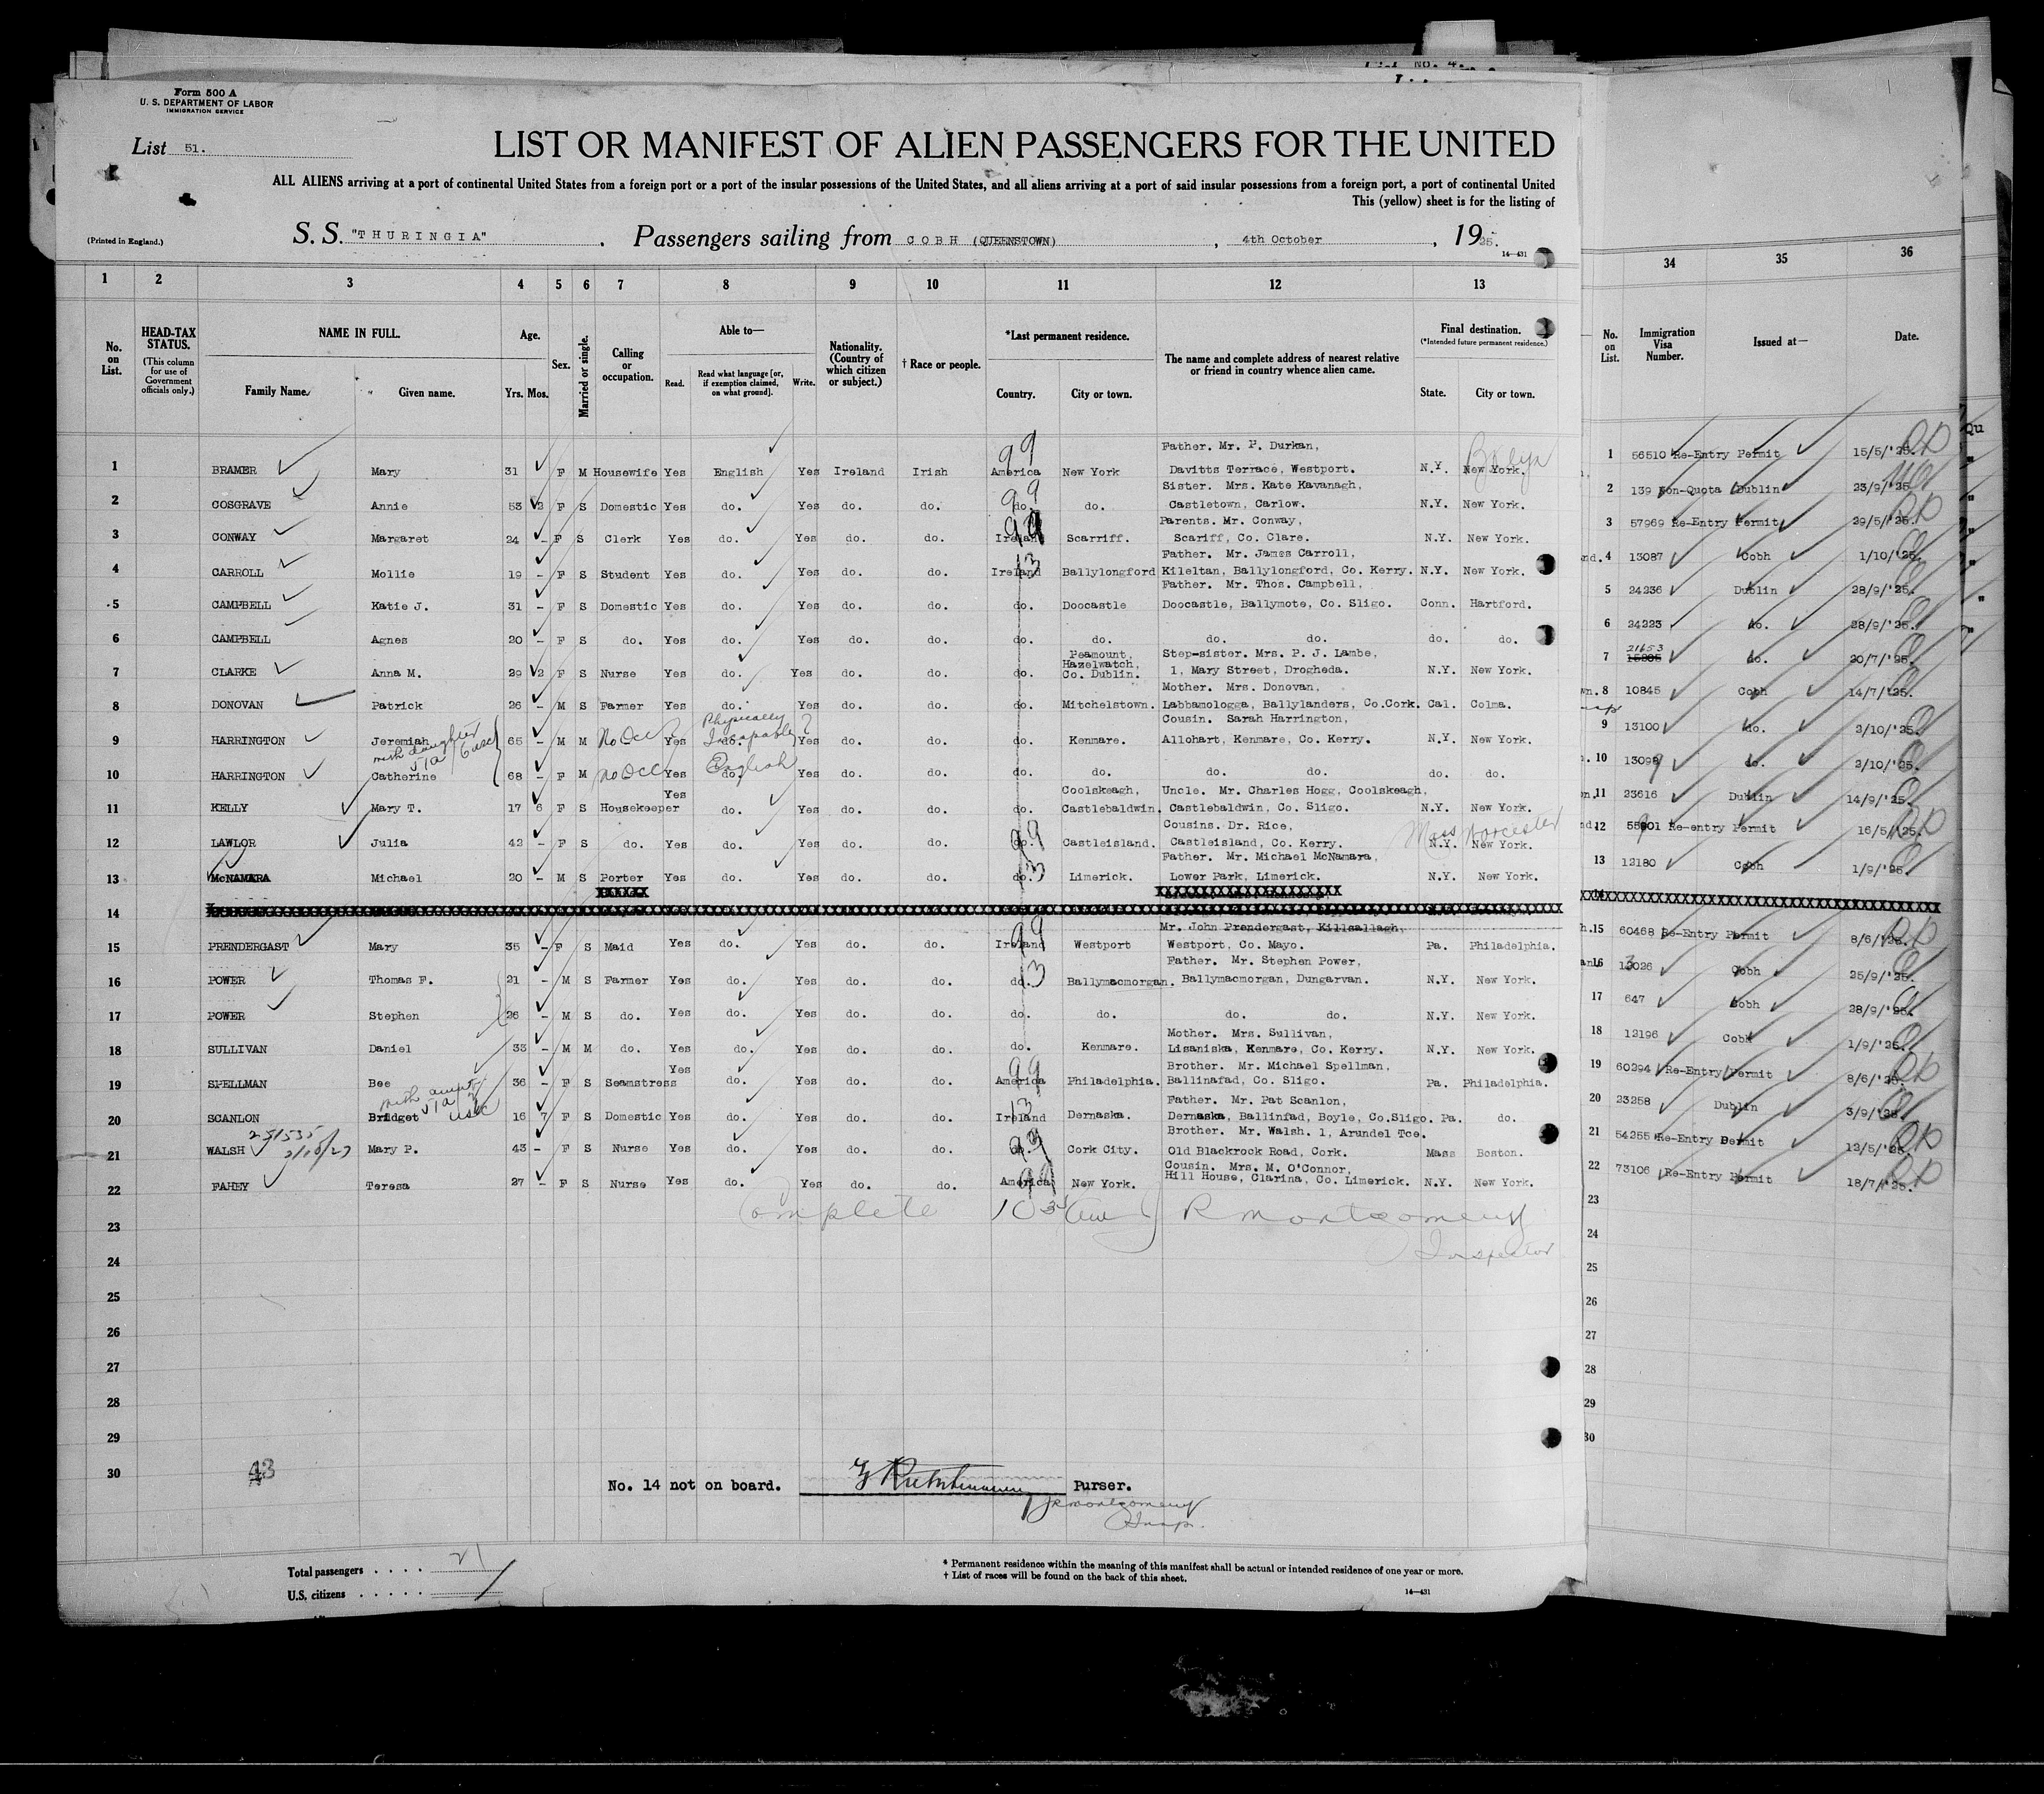 Form 500 A
U. S. DEPARTMENT OF LABOR
IMMIGRATION SERVICE
List 51.
LIST OR MANIFEST OF ALIEN PASSENGERS FOR THE UNITED
ALL ALIENS arriving at a port of continental United States from a foreign port or a port of the insular possessions of the United States, and all aliens arriving at a port of said insular possessions from a foreign port, a port of continental United
This (yellow) sheet is for the listing of
(Printed in England.) S. S. "THURINGIA" , Passengers sailing from COBH (QUEENSTOWN) , 4th October , 1925.
14—431
1 2 3 4 5 6 7 8 9 10 11 12 13 34 35 36
No. on List. HEAD-TAX STATUS. (This column for use of Government officials only.) NAME IN FULL. Family Name. Given name. Age. Yrs. Mos. Sex. Married or single. Calling or occupation. Able to— Read. Read what language [or, if exemption claimed, on what ground]. Write. Nationality. (Country of which citizen or subject.) † Race or people. *Last permanent residence. Country. City or town. The name and complete address of nearest relative or friend in country whence alien came. Final destination. (*Intended future permanent residence.) State. City or town. No. on List. Immigration Visa Number. Issued at— Date.
Father. Mr. P. Durkan,
1 BRAMER Mary 31 F M Housewife Yes English Yes Ireland Irish America New York Davitts Terrace, Westport. N.Y. New York. 1 56510 Re-Entry Permit 15/5/'25.
Sister. Mrs. Kate Kavanagh,
2 COSGRAVE Annie 53 2 F S Domestic Yes do. Yes do. do. do. do. Castletown, Carlow. N.Y. New York. 2 139 Non-Quota Dublin 23/9/'25
Parents. Mr. Conway,
3 CONWAY Margaret 24 - F S Clerk Yes do. Yes do. do. Ireland Scarriff. Scariff, Co. Clare. N.Y. New York. 3 57969 Re-Entry Permit 29/5/'25.
Father. Mr. James Carroll,
4 CARROLL Mollie 19 - F S Student Yes do. Yes do. do. Ireland Ballylongford Kileltan, Ballylongford, Co. Kerry. N.Y. New York. 4 13087 Cobh 1/10/'25.
Father. Mr. Thos. Campbell,
5 CAMPBELL Katie J. 31 - F S Domestic Yes do. Yes do. do. do. Doocastle Doocastle, Ballymote, Co. Sligo. Conn. Hartford. 5 24236 Dublin 28/9/'25.
6 CAMPBELL Agnes 20 - F S do. Yes do. Yes do. do. do. do. do. do. do. do. 6 24223 do. 28/9/'25.
Peamount, Step-sister. Mrs. P. J. Lambe, 21653
7 CLARKE Anna M. 29 2 F S Nurse Yes do. Yes do. do. do. Hazelwatch, Co. Dublin. 1, Mary Street, Drogheda. N.Y. New York. 7 do. 20/7/'25.
Mother. Mrs. Donovan,
8 DONOVAN Patrick 26 - M S Farmer Yes do. Yes do. do. do. Mitchelstown. Labbamologga, Ballylanders, Co.Cork. Cal. Colma. 8 10845 Cobh 14/7/'25.
Physically Cousin. Sarah Harrington,
9 HARRINGTON Jeremiah 65 - M M No Occ Yes do. Incapable Yes do. do. do. Kenmare. Allohart, Kenmare, Co. Kerry. N.Y. New York. 9 13100 do. 2/10/'25.
with daughter
10 HARRINGTON Catherine 68 - F M No Occ Yes do. English Yes do. do. do. do. do. do. do. do. 10 do. 2/10/'25.
Yes Coolskeagh, Uncle. Mr. Charles Hogg, Coolskeagh,
11 KELLY Mary T. 17 6 F S Housekeeper do. Yes do. do. do. Castlebaldwin. Castlebaldwin, Co. Sligo. N.Y. New York. 11 23616 Dublin 14/9/'25.
Cousins. Dr. Rice, Mass Worcester
12 LAWLOR Julia 42 - F S do. Yes do. Yes do. do. do. Castleisland. Castleisland, Co. Kerry. N.Y. New York. 12 Re-entry Permit 16/5/'25.
Father. Mr. Michael McNamara,
13 McNAMARA Michael 20 - M S Porter Yes do. Yes do. do. do. Limerick. Lower Park, Limerick. N.Y. New York. 13 12180 Cobh 1/9/'25.
14
Mr. John Prendergast, Killsallagh,
15 PRENDERGAST Mary 35 - F S Maid Yes do. Yes do. do. Ireland Westport Westport, Co. Mayo. Pa. Philadelphia. 15 60468 Re-Entry Permit 8/6/'25.
Father. Mr. Stephen Power,
16 POWER Thomas F. 21 - M S Farmer Yes do. Yes do. do. do. Ballymacmorgan. Ballymacmorgan, Dungarvan. N.Y. New York. 16 13026 Cobh 25/9/'25.
17 POWER Stephen 26 - M S do. Yes do. Yes do. do. do. do. do. do. N.Y. New York. 17 647 Cobh 28/9/'25.
Mother. Mrs. Sullivan,
18 SULLIVAN Daniel 33 - M M do. Yes do. Yes do. do. do. Kenmare. Lisaniska, Kenmare, Co. Kerry. N.Y. New York. 18 12196 Cobh 1/9/'25.
Yes Brother. Mr. Michael Spellman,
19 SPELLMAN Bee 36 - F S Seamstress do. Yes do. do. America Philadelphia. Ballinafad, Co. Sligo. Pa. Philadelphia. 19 60294 Re-Entry Permit 8/6/'25.
with aunt Father. Mr. Pat Scanlon,
20 SCANLON Bridget 16 7 F S Domestic Yes do. Yes do. do. Ireland Dernaska. Dernaska, Ballinfad, Boyle, Co.Sligo. Pa. do. 20 23258 Dublin 3/9/'25.
Brother. Mr. Walsh. 1, Arundel Tce.
21 WALSH Mary P. 43 - F S Nurse Yes do. Yes do. do. do. Cork City. Old Blackrock Road, Cork. Mass Boston. 21 54255 Re-Entry Permit 12/5/'25.
Cousin. Mrs. M. O'Connor,
22 FAHEY Teresa 27 - F S Nurse Yes do. Yes do. do. America New York. Hill House, Clarina, Co. Limerick. N.Y. New York. 22 73106 Re-Entry Permit 18/7/'25.
23 Complete R Montgomery 23
24 Inspector 24
25 25
26 26
27 27
28 28
29 29
30 43 30
No. 14 not on board. Purser.
JRMontgomery
Insp.
Total passengers . . . . 21
U.S. citizens . . . . .
* Permanent residence within the meaning of this manifest shall be actual or intended residence of one year or more.
† List of races will be found on the back of this sheet.
14—431